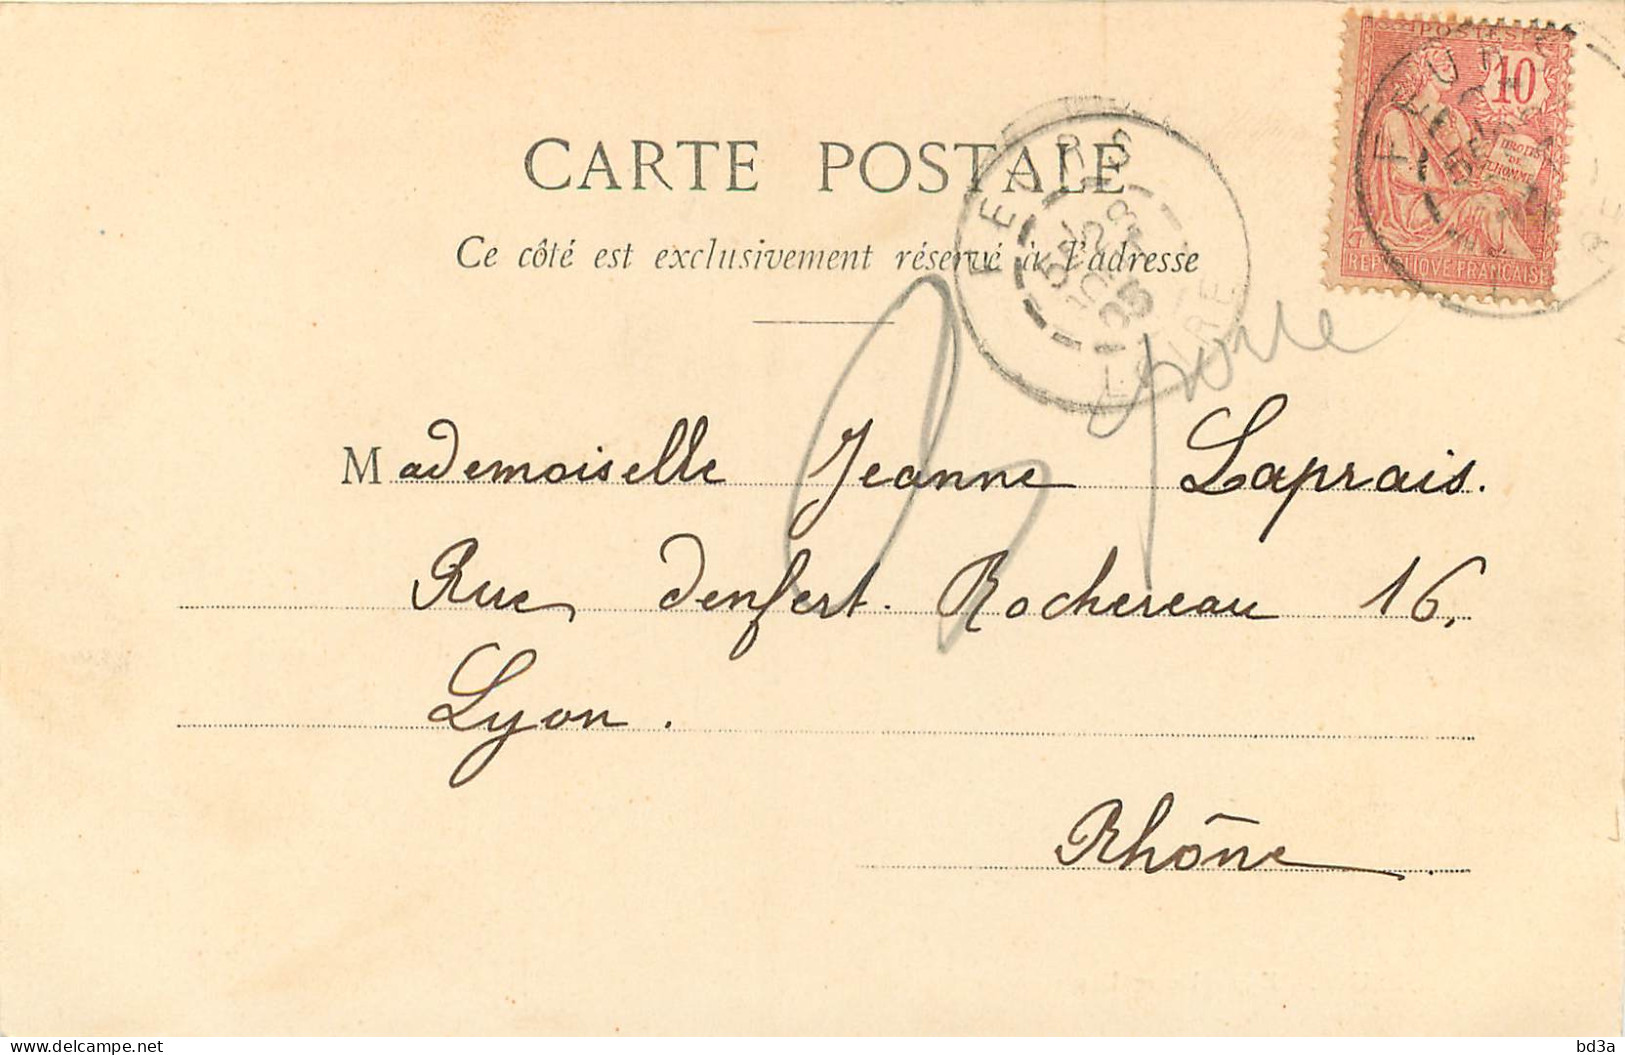 CARTE POSTALE
Ce côté est exclusivement réservé à l'adresse
POSTES
10
DROITS
DE
L'HOMME
REPUBLIQUE FRANÇAISE
FEURS
28
03
LOIRE
FEURS
Mademoiselle Jeanne Laprais.
Rue Denfert. Rochereau 16.
Lyon.
Rhône
bd3a